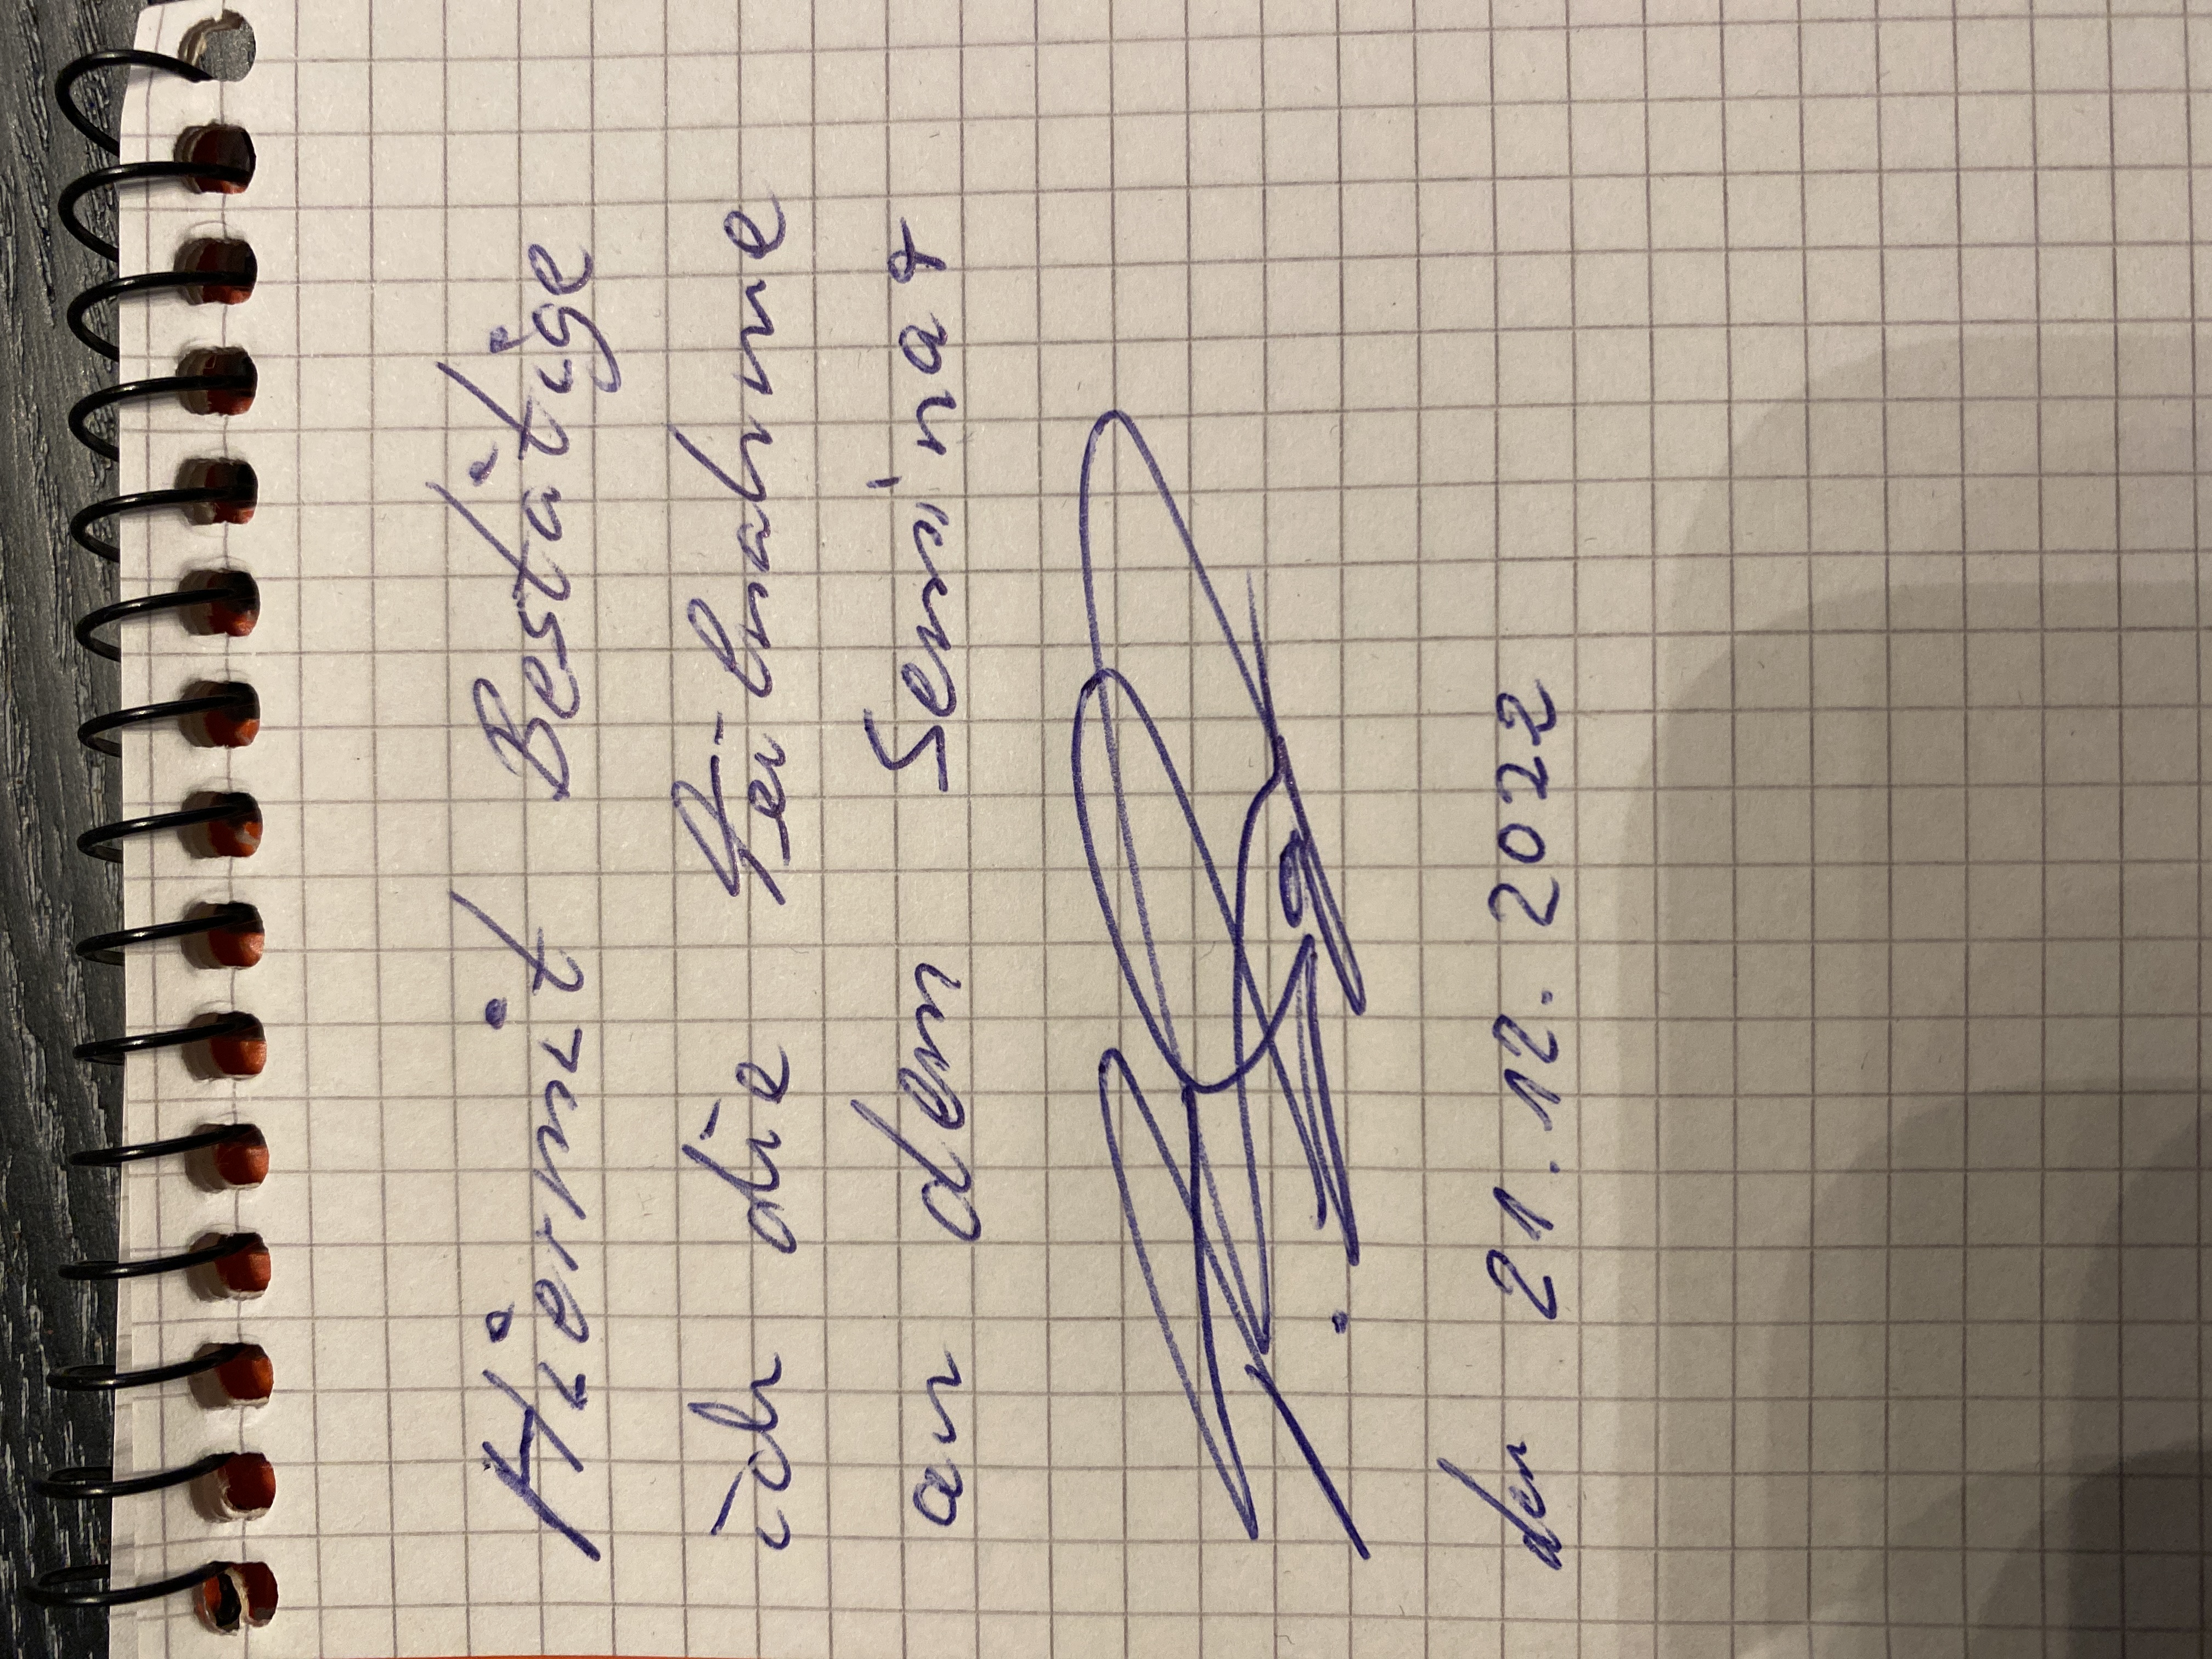 Hiermit Bestätige
ich die Teilnahme
an dem Seminar
den 21.12.2022